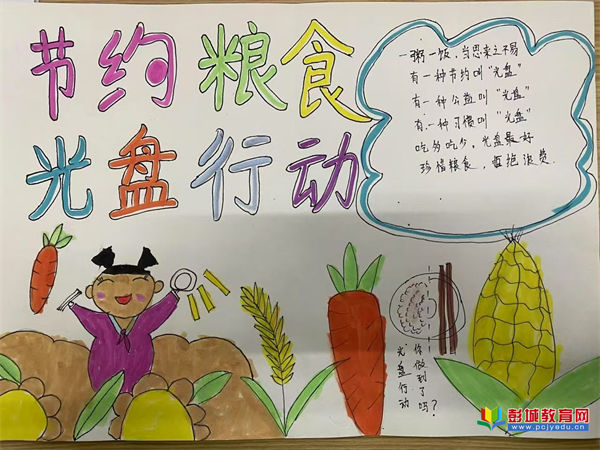 节约粮食
光盘行动
一粥一饭，当思来之不易
有一种节约叫“光盘”
有一种公益叫“光盘”
有一种习惯叫“光盘”
吃多吃少，光盘最好
珍惜粮食，拒绝浪费.
你做到了吗？
光盘行动
彭城教育网
www.pcjyedu.cn